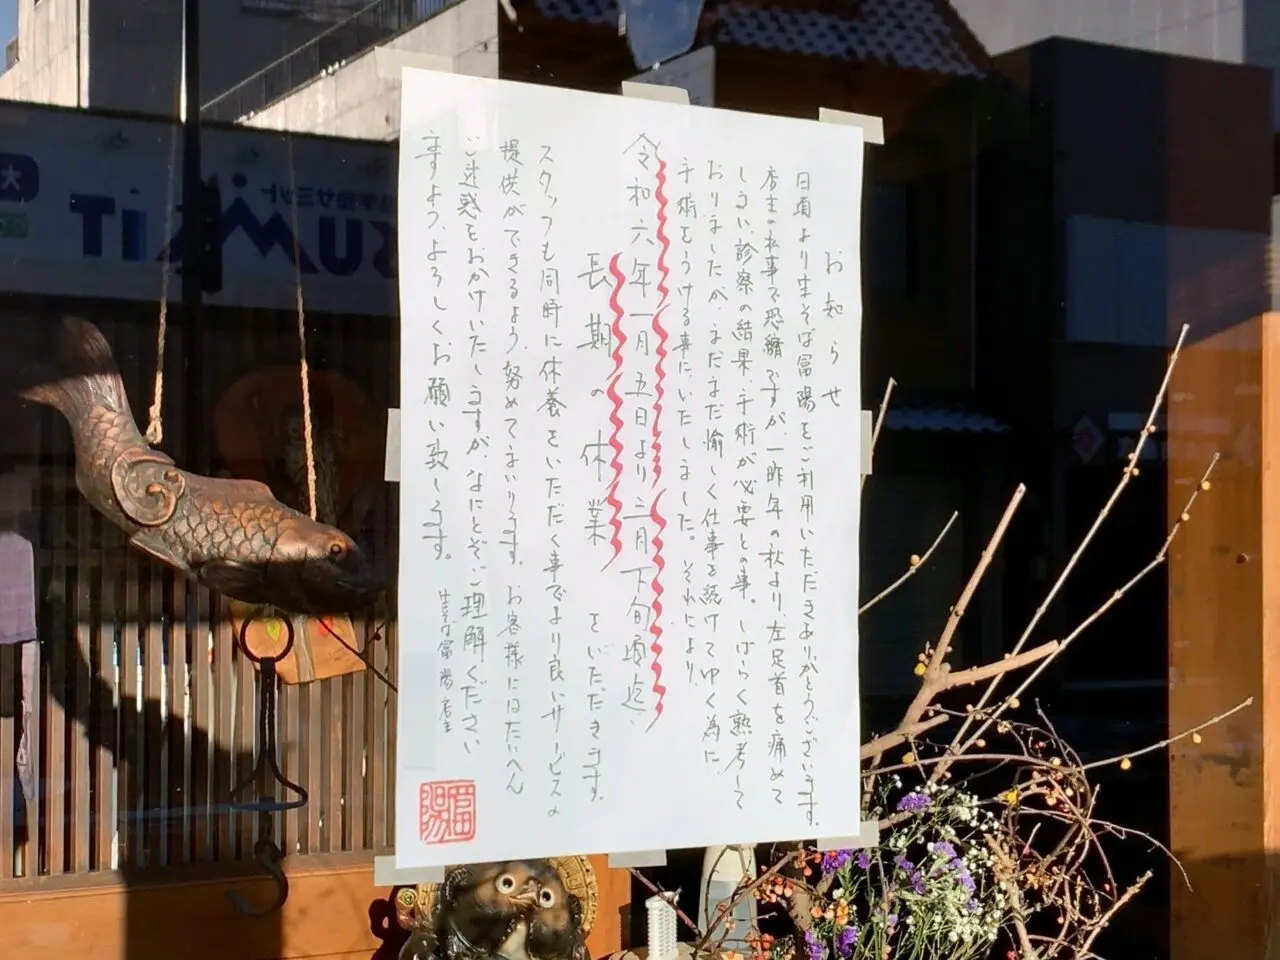 お知らせ
日頃より生そば冨陽をご利用いただきありがとうございます。
店主の私事で恐縮ですが、一昨年の秋より、左足首を痛めて
しまい、診察の結果、手術が必要との事。しばらく熟考して
おりましたが、まだまだ愉しく仕事を続けてゆく為に
手術をうける事にいたしました。それにより、
令和六年一月五日より三月下旬頃迄、
長期の休業をいただきます。
スタッフも同時に休養をいただく事でより良いサービスの
提供ができるよう、努めてまいります。お客様にはたいへん
ご迷惑をおかけいたしますが、なにとぞご理解ください
ますよう、よろしくお願い致します。
生そば冨陽 店主
冨陽
SUMMIT
学習塾サミット
大